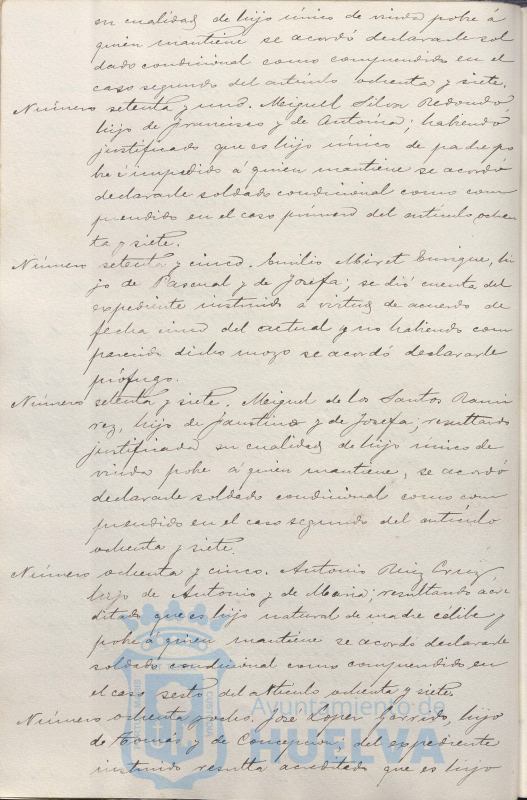 en cualidad de hijo único de viuda pobre á
quien mantiene se acordó declararle sol
dado condicional como comprendido en el
caso segundo del artículo ochenta y siete.
Número setenta y uno. Miguel Silva Redondo
hijo de Francisco y de Antonia; habiendo
justificado que es hijo único de padre po
bre é impedido á quien mantiene se acordó
declararle soldado condicional como com
prendido en el caso primero del artículo ochen
ta y siete.
Número setenta y cinco. Emilio Miret Enrique, hi
jo de Pascual y de Josefa; se dió cuenta del
expediente instruido a virtud de acuerdo de
fecha uno del actual y no habiendo com
parecido dicho mozo se acordó declararle
prófugo.
Número setenta y siete. Miguel de los Santos Rami
rez, hijo de Faustino y de Josefa; resultando
justificada su cualidad de hijo único de
viuda pobre á quien mantiene, se acordó
declararle soldado condicional como com
prendido en el caso segundo del artículo
ochenta y siete.
Número ochenta y cinco. Antonio Ruiz Cruz,
hijo de Antonio y de Maria; resultando acre
ditado que es hijo natural de madre célibe y
pobre á quien mantiene se acordó declararle
soldado condicional como comprendido en
el caso sesto del artículo ochenta y siete.
Número ochenta y ocho. José López Garrido, hijo
de Tomás y de Concepcion, del expediente
instruido resulta acreditado que es hijo
Ayuntamiento de
HUELVA